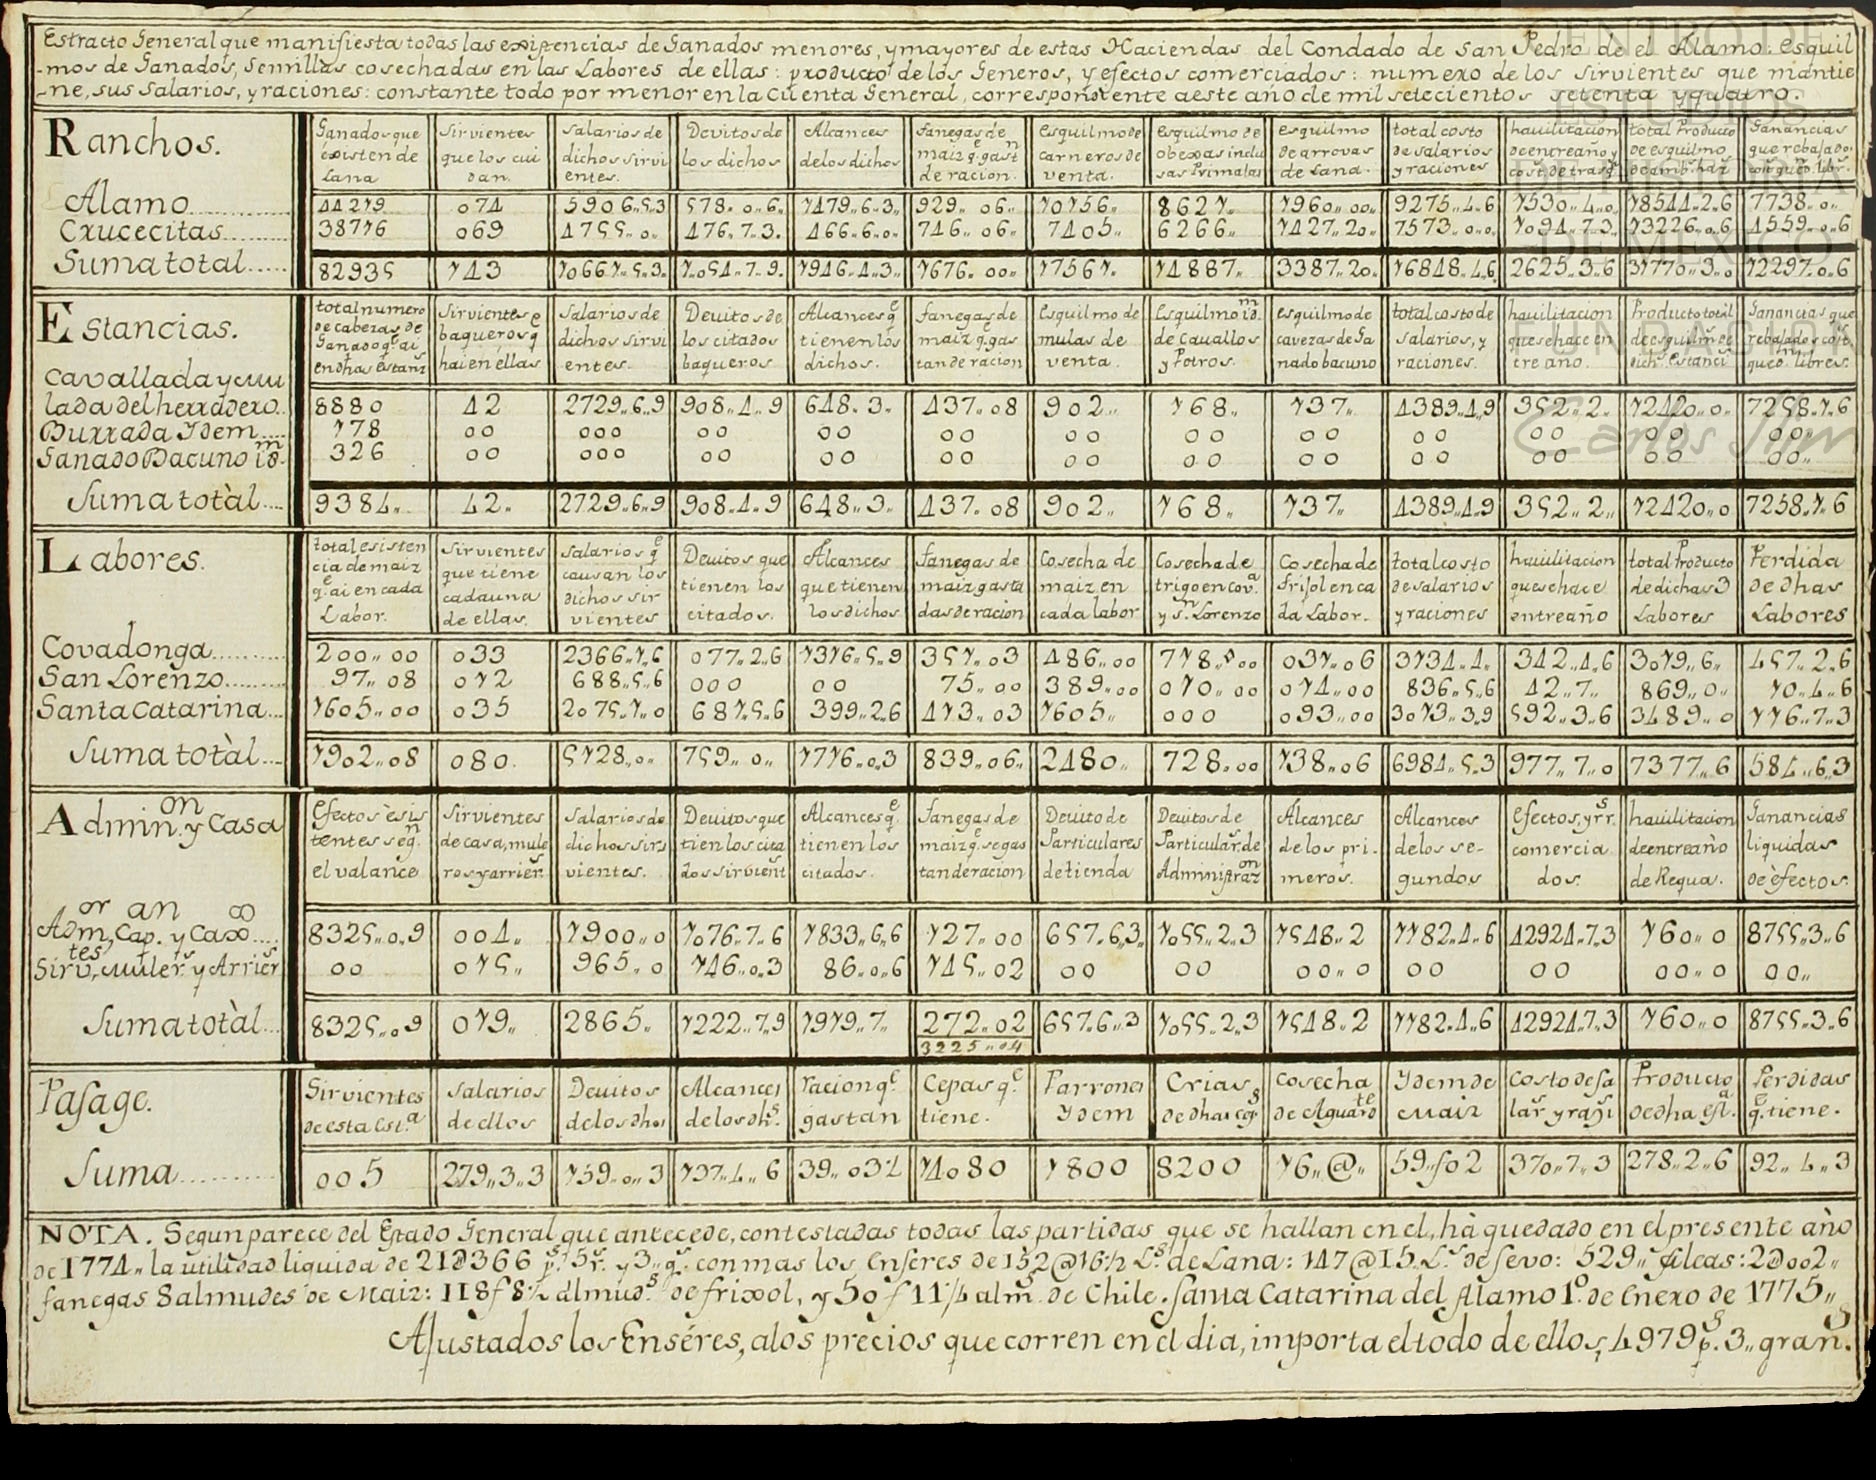 Estracto General que manifiesta todas las existencias de Ganados menores, y mayores de estas Haciendas del Condado de San Pedro de el Alamo: esquil
-mos de Ganados, Semillas cosechadas en las Labores de ellas: producto de los Generos, y efectos comerciados: numero de los sirvientes que mantie
-ne, sus salarios, y raciones: constante todo por menor en la Cuenta General, correspondiente a este año de mil setecientos setenta y quatro.
Ranchos. | Ganados que existen de Lana | Sirvientes que los cuidan. | Salarios de dichos sirvientes. | Devitos de los dichos | Alcances de los dichos | fanegas de maiz q.e gast.n de racion. | esquilmo de carneros de venta. | esquilmo de obexas inclusas Primalas | esquilmo de arrovas de Lana. | total costo de salarios y raciones | havilitacion de entreaño y | total Producto de esquilmo | Ganancias que rebajado
Alamo | 44219 | 074 | 5906,,5,,3 | 578,,0,,6 | 1479,,6,,3 | 929,,06 | 10156 | 8621 | 1960,,00 | 9275,,4,,6 | 1530,,4,,0 | 18544,,2,,6 | 7738,,0
Crucecitas | 38716 | 069 | 4755,,0 | 476,,7,,3 | 466,,6,,0 | 746,,06 | 7405 | 6266 | 1427,,20 | 7573,,0,,0 | 1094,,7,,3 | 13226,,0,,6 | 4559,,0,,6
Suma total | 82935 | 143 | 10661,,5,,3 | 1,054,,7,,9 | 1946,,4,,3 | 1676,,00 | 17561 | 14887 | 3387,,20 | 16848,,4,,6 | 2625,,3,,6 | 31770,,3,,0 | 12297,,0,,6
Estancias. | total numero de cabezas de Ganado q.e ai en dhas Estan.s | Sirvientes baqueros q.e hai en ellas | Salarios de dichos sirvientes. | Deuitos de los citados baqueros. | Alcances q.e tienen los dichos. | fanegas de maiz q.e gastan de racion | Esquilmo de mulas de venta. | Esquilmo id.m de Cauallos y Potros. | esquilmo de cavezas de Ganado bacuno | total costo de salarios, y raciones. | hauilitacion que se hace entre año. | Producto total de esquilm.s de dich.s Estanci | Ganancias que rebajados cost.s qued.n libres.
Cavallada y Mu
lada del herradero | 8880 | 42 | 2729,,6,,9 | 908,,4,,9 | 648,,3 | 437,,08 | 902 | 168 | 137 | 4389,,4,,9 | 352,,2 | 12420,,0 | 7258,,1,,6
Burrada Ydem | 178 | 00 | 000 | 00 | 00 | 00 | 00 | 00 | 00 | 00 | 00 | 00 | 00
Ganado Bacuno id.m | 326 | 00 | 000 | 00 | 00 | 00 | 00 | 00 | 00 | 00 | 00 | 00 | 00
Suma totàl | 9384 | 42 | 2729,,6,,9 | 908,,4,,9 | 648,,3 | 437,,08 | 902 | 168 | 137 | 4389,,4,,9 | 352,,2 | 12420,,0 | 7258,,1,,6
Labores. | total esistencia de maiz q.e ai en cada Labor. | Sirvientes que tiene cada una de ellas. | Salarios q.e causan los dichos sirvientes | Deuitos que tienen los citados. | Alcances que tienen los dichos | fanegas de maiz gastadas de racion | Cosecha de maiz en cada labor | Cosecha de trigo en Cov.a y S.n Lorenzo | Cosecha de frijol en cada Labor. | total costo de salarios y raciones | hauilitacion que se hace entreaño | total Producto de dichas 3 Labores | Perdida de dhas Labores
Covadonga | 200,,00 | 033 | 2366,,1,,6 | 077,,2,,6 | 1316,,5,,9 | 351,,03 | 486,,00 | 718,,00 | 031,,06 | 3134,,4 | 342,,4,,6 | 3019,,6 | 457,,2,,6
San Lorenzo | 97,,08 | 012 | 688,,5,,6 | 000 | 00 | 75,,00 | 389,,00 | 010,,00 | 014,,00 | 836,,5,,6 | 42,,7 | 869,,0 | 10,,4,,6
Santa Catarina | 1605,,00 | 035 | 2075,,1,,0 | 681,,5,,6 | 399,,2,,6 | 413,,03 | 1605 | 000 | 093,,00 | 3013,,3,,9 | 592,,3,,6 | 3489,,0 | 116,,7,,3
Suma totàl | 1902,,08 | 080 | 5128,,0 | 759,,0 | 1716,,0,,3 | 839,,06 | 2480 | 728,,00 | 138,,06 | 6984,,5,,3 | 977,,7,,0 | 7377,,6 | 584,,6,,3
Admin.on y Casa | Efectos èsistentes seg.n el valance | Sirvientes de casa, muleros y arrier.s | Salarios de dichos sirvientes. | Deuitos que tien los citados sirvient | Alcances q.e tienen los citados. | Fanegas de maiz q.e se gastan de racion | Deuito de Particulares de tienda | Deuitos de Particular.s de Administraz.on | Alcances de los primeros. | Alcances de los segundos | Efectos, y rr.s comerciados. | hauilitacion de entreaño de Requa. | Ganancias liquidas de èfectos.
Adm.or, Cap.an y Caxo | 8325,,0,,9 | 004 | 1900,,0 | 1076,,7,,6 | 1833,,6,,6 | 127,,00 | 657,,6,,3 | 1055,,2,,3 | 1548,,2 | 1182,,4,,6 | 42924,,7,,3 | 160,,0 | 8755,,3,,6
Sirv.tes, Muler.s y Arrier.s | 00 | 015 | 965,,0 | 146,,0,,3 | 86,,0,,6 | 145,,02 | 00 | 00 | 00,,0 | 00 | 00 | 00,,0 | 00
Suma totàl | 8325,,0,,9 | 019 | 2865 | 1222,,7,,9 | 1919,,7 | 272,,02 | 657,,6,,3 | 1055,,2,,3 | 1548,,2 | 1182,,4,,6 | 42924,,7,,3 | 160,,0 | 8755,,3,,6
3225,,04
Pasage. | Sirvientes de esta Est.a | Salarios de ellos | Deuitos de los dhos | Alcances de los dh.s | racion q.e gastan | Cepas q.e tiene. | Parrones Ydem | Crias de dhas | Cosecha de Aguard.te | Ydem de Maiz | Costo de salar.s y ras.s | Producto de dha est.a | Perdidas q.e tiene.
Suma | 005 | 279,,3,,3 | 159,,0,,3 | 137,,4,,6 | 39,,03 | 14080 | 1800 | 8200 | 16,,@ | 59,,f02 | 370,,7,,3 | 278,,2,,6 | 92,,4,,3
NOTA. Segun parece del Estado General que antecede, contestadas todas las partidas que se hallan en el, hà quedado en el presente año
de 1774,, la utilidad liquida de 21@366 p.s 5 r.s y 3,, g.s con mas los Enseres de 152@16½ L.s de Lana: 147@15 L.s de sevo: 529,, fileas: 2@002,,
fanegas 8 almudes de Maiz: 118f 8½ almud.s de frixol, y 50f 11¼ alm.s de Chile. Santa Catarina del Alamo 1.o de Enero de 1775,,
Ajustados los Enséres, a los precios que corren en el dia, importa el todo de ellos, 4979 p.s 3,, gran.s
CENTRO DE
ESTUDIOS
DE HISTORIA
DE MEXICO
FUNDACION
Carlos Slim